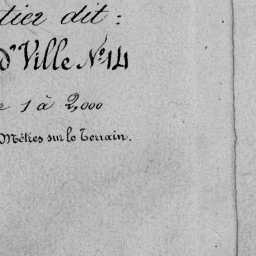 tier dit :
d'Ville N.º 14
e 1 à 2,000
Mètres sur le Terrain.